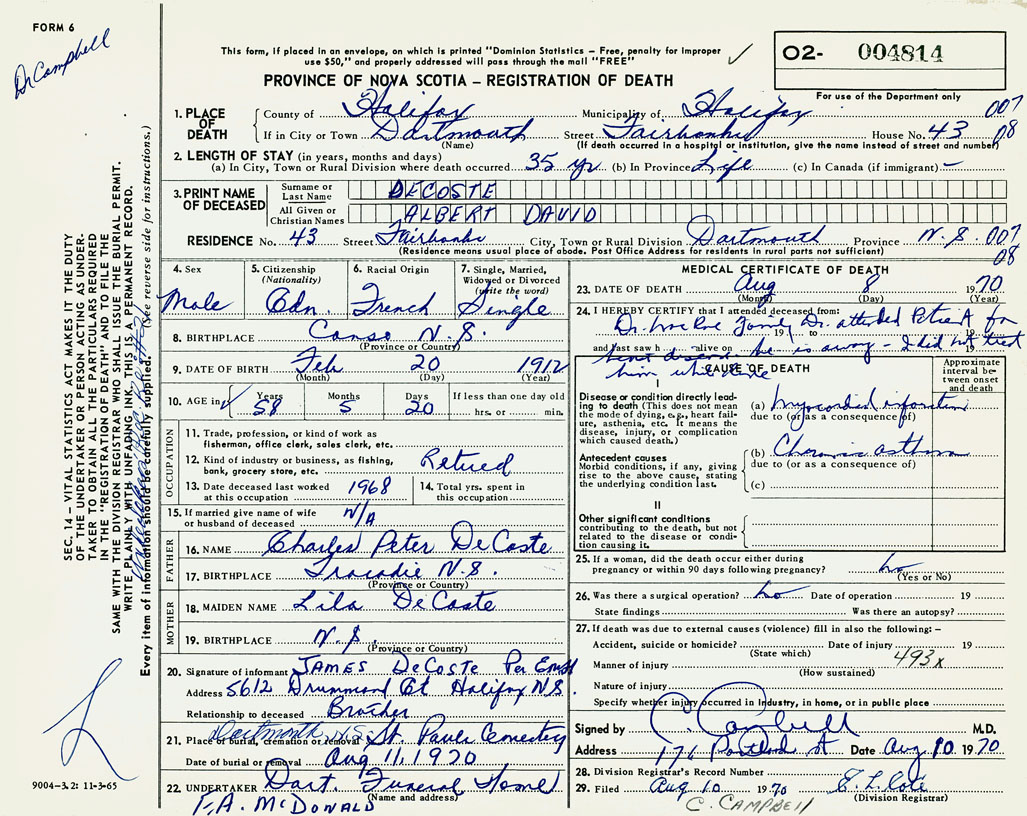 FORM 6
Dr Campbell
This form, if placed in an envelope, on which is printed "Dominion Statistics – Free, penalty for improper
use $50," and properly addressed will pass through the mail "FREE"
✓
O2- 004814
For use of the Department only
PROVINCE OF NOVA SCOTIA – REGISTRATION OF DEATH
1. PLACE OF DEATH
County of Halifax Municipality of Halifax 007
If in City or Town Dartmouth Street Fairbanks House No. 43 08
(Name) (If death occurred in a hospital or institution, give the name instead of street and number)
2. LENGTH OF STAY (in years, months and days)
(a) In City, Town or Rural Division where death occurred 35 yr (b) In Province Life (c) In Canada (if immigrant) –
3. PRINT NAME OF DECEASED
Surname or Last Name DECOSTE
All Given or Christian Names ALBERT DAVID
RESIDENCE No. 43 Street Fairbanks City, Town or Rural Division Dartmouth Province N.S. 007
(Residence means usual place of abode. Post Office Address for residents in rural parts not sufficient) 08
4. Sex Male
5. Citizenship (Nationality) Cdn.
6. Racial Origin French
7. Single, Married, Widowed or Divorced (write the word) Single
8. BIRTHPLACE Canso N.S.
(Province or Country)
9. DATE OF BIRTH Feb 20 1912
(Month) (Day) (Year)
10. AGE in Years 58 Months 5 Days 20 If less than one day old hrs. or min.
OCCUPATION
11. Trade, profession, or kind of work as
fisherman, office clerk, sales clerk, etc.
12. Kind of industry or business, as fishing,
bank, grocery store, etc. Retired
13. Date deceased last worked at this occupation 1968
14. Total yrs. spent in this occupation
15. If married give name of wife
or husband of deceased N/A
FATHER
16. NAME Charles Peter DeCoste
17. BIRTHPLACE Tracadie N.S.
(Province or Country)
MOTHER
18. MAIDEN NAME Lila DeCoste
19. BIRTHPLACE N.S.
(Province or Country)
20. Signature of informant JAMES DeCOSTE Per
Address 5612 Drummond Ct Halifax N.S.
Relationship to deceased Brother
Dartmouth N.S.
21. Place of burial, cremation or removal St. Pauls Cemetery
Date of burial or removal Aug 11, 1970
22. UNDERTAKER Dart. Funeral Home
(Name and address)
F.A. McDONALD
MEDICAL CERTIFICATE OF DEATH
23. DATE OF DEATH Aug 8 1970
(Month) (Day) (Year)
24. I HEREBY CERTIFY that I attended deceased from:
Dr. Family Dr. attended Patient for
19 to 19
and last saw h alive on he is away – I did not treat
him
CAUSE OF DEATH
Approximate interval between onset and death
I
Disease or condition directly leading
to death (This does not mean
the mode of dying, e.g., heart failure,
asthenia, etc. It means the
disease, injury, or complication
which caused death.)
(a) Myocardial infarction
due to (or as a consequence of)
Antecedent causes
Morbid conditions, if any, giving
rise to the above cause, stating
the underlying condition last.
(b) Chronic asthma
due to (or as a consequence of)
(c)
II
Other significant conditions
contributing to the death, but not
related to the disease or condition
causing it.
25. If a woman, did the death occur either during
pregnancy or within 90 days following pregnancy? no
(Yes or No)
26. Was there a surgical operation? no Date of operation 19
State findings Was there an autopsy?
27. If death was due to external causes (violence) fill in also the following: –
Accident, suicide or homicide? Date of injury 19
(State which) 493x
Manner of injury
(How sustained)
Nature of injury
Specify whether injury occurred in industry, in home, or in public place
Signed by C. Campbell M.D.
Address 176 Portland St Date Aug 10 1970
28. Division Registrar's Record Number
29. Filed Aug 10 1970
(Division Registrar)
C. CAMPBELL
SEC. 14 – VITAL STATISTICS ACT MAKES IT THE DUTY
OF THE UNDERTAKER OR PERSON ACTING AS UNDERTAKER
TO OBTAIN ALL THE PARTICULARS REQUIRED
IN THE "REGISTRATION OF DEATH" AND TO FILE THE
SAME WITH THE DIVISION REGISTRAR WHO SHALL ISSUE THE BURIAL PERMIT.
WRITE PLAINLY WITH UNFADING INK. THIS IS A PERMANENT RECORD.
Every item of information should be carefully supplied. (See reverse side for instructions.)
9004-3.2: 11-3-65